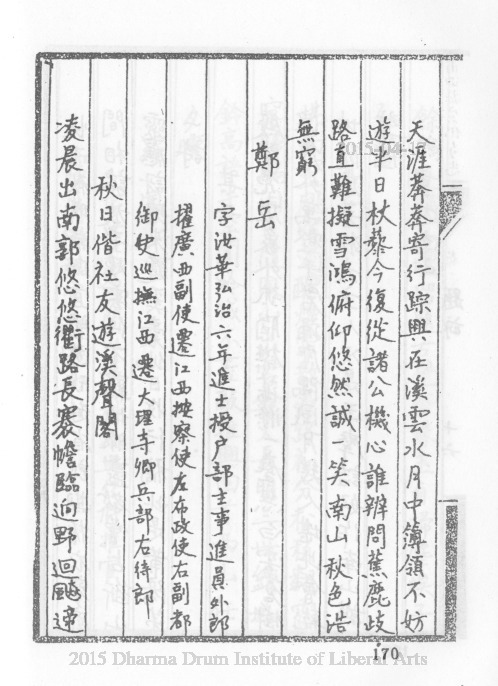 天涯莽莽寄行踪興在溪雲水月中簿領不妨
遊半日杖藜今復從諸公機心誰辨問蕉鹿歧
路真難擬雪鴻俯仰悠然誠一笑南山秋色浩
無窮
鄭岳
字汝華弘治六年進士授户部主事進員外郎
擢廣西副使遷江西按察使左布政使右副都
御史巡撫江西遷大理寺卿兵部右侍郎
秋日偕社友遊溪聲閣
凌晨出南郭悠悠衢路長褰幨臨迥野迴颷遞
170
2015 Dharma Drum Institute of Liberal Arts